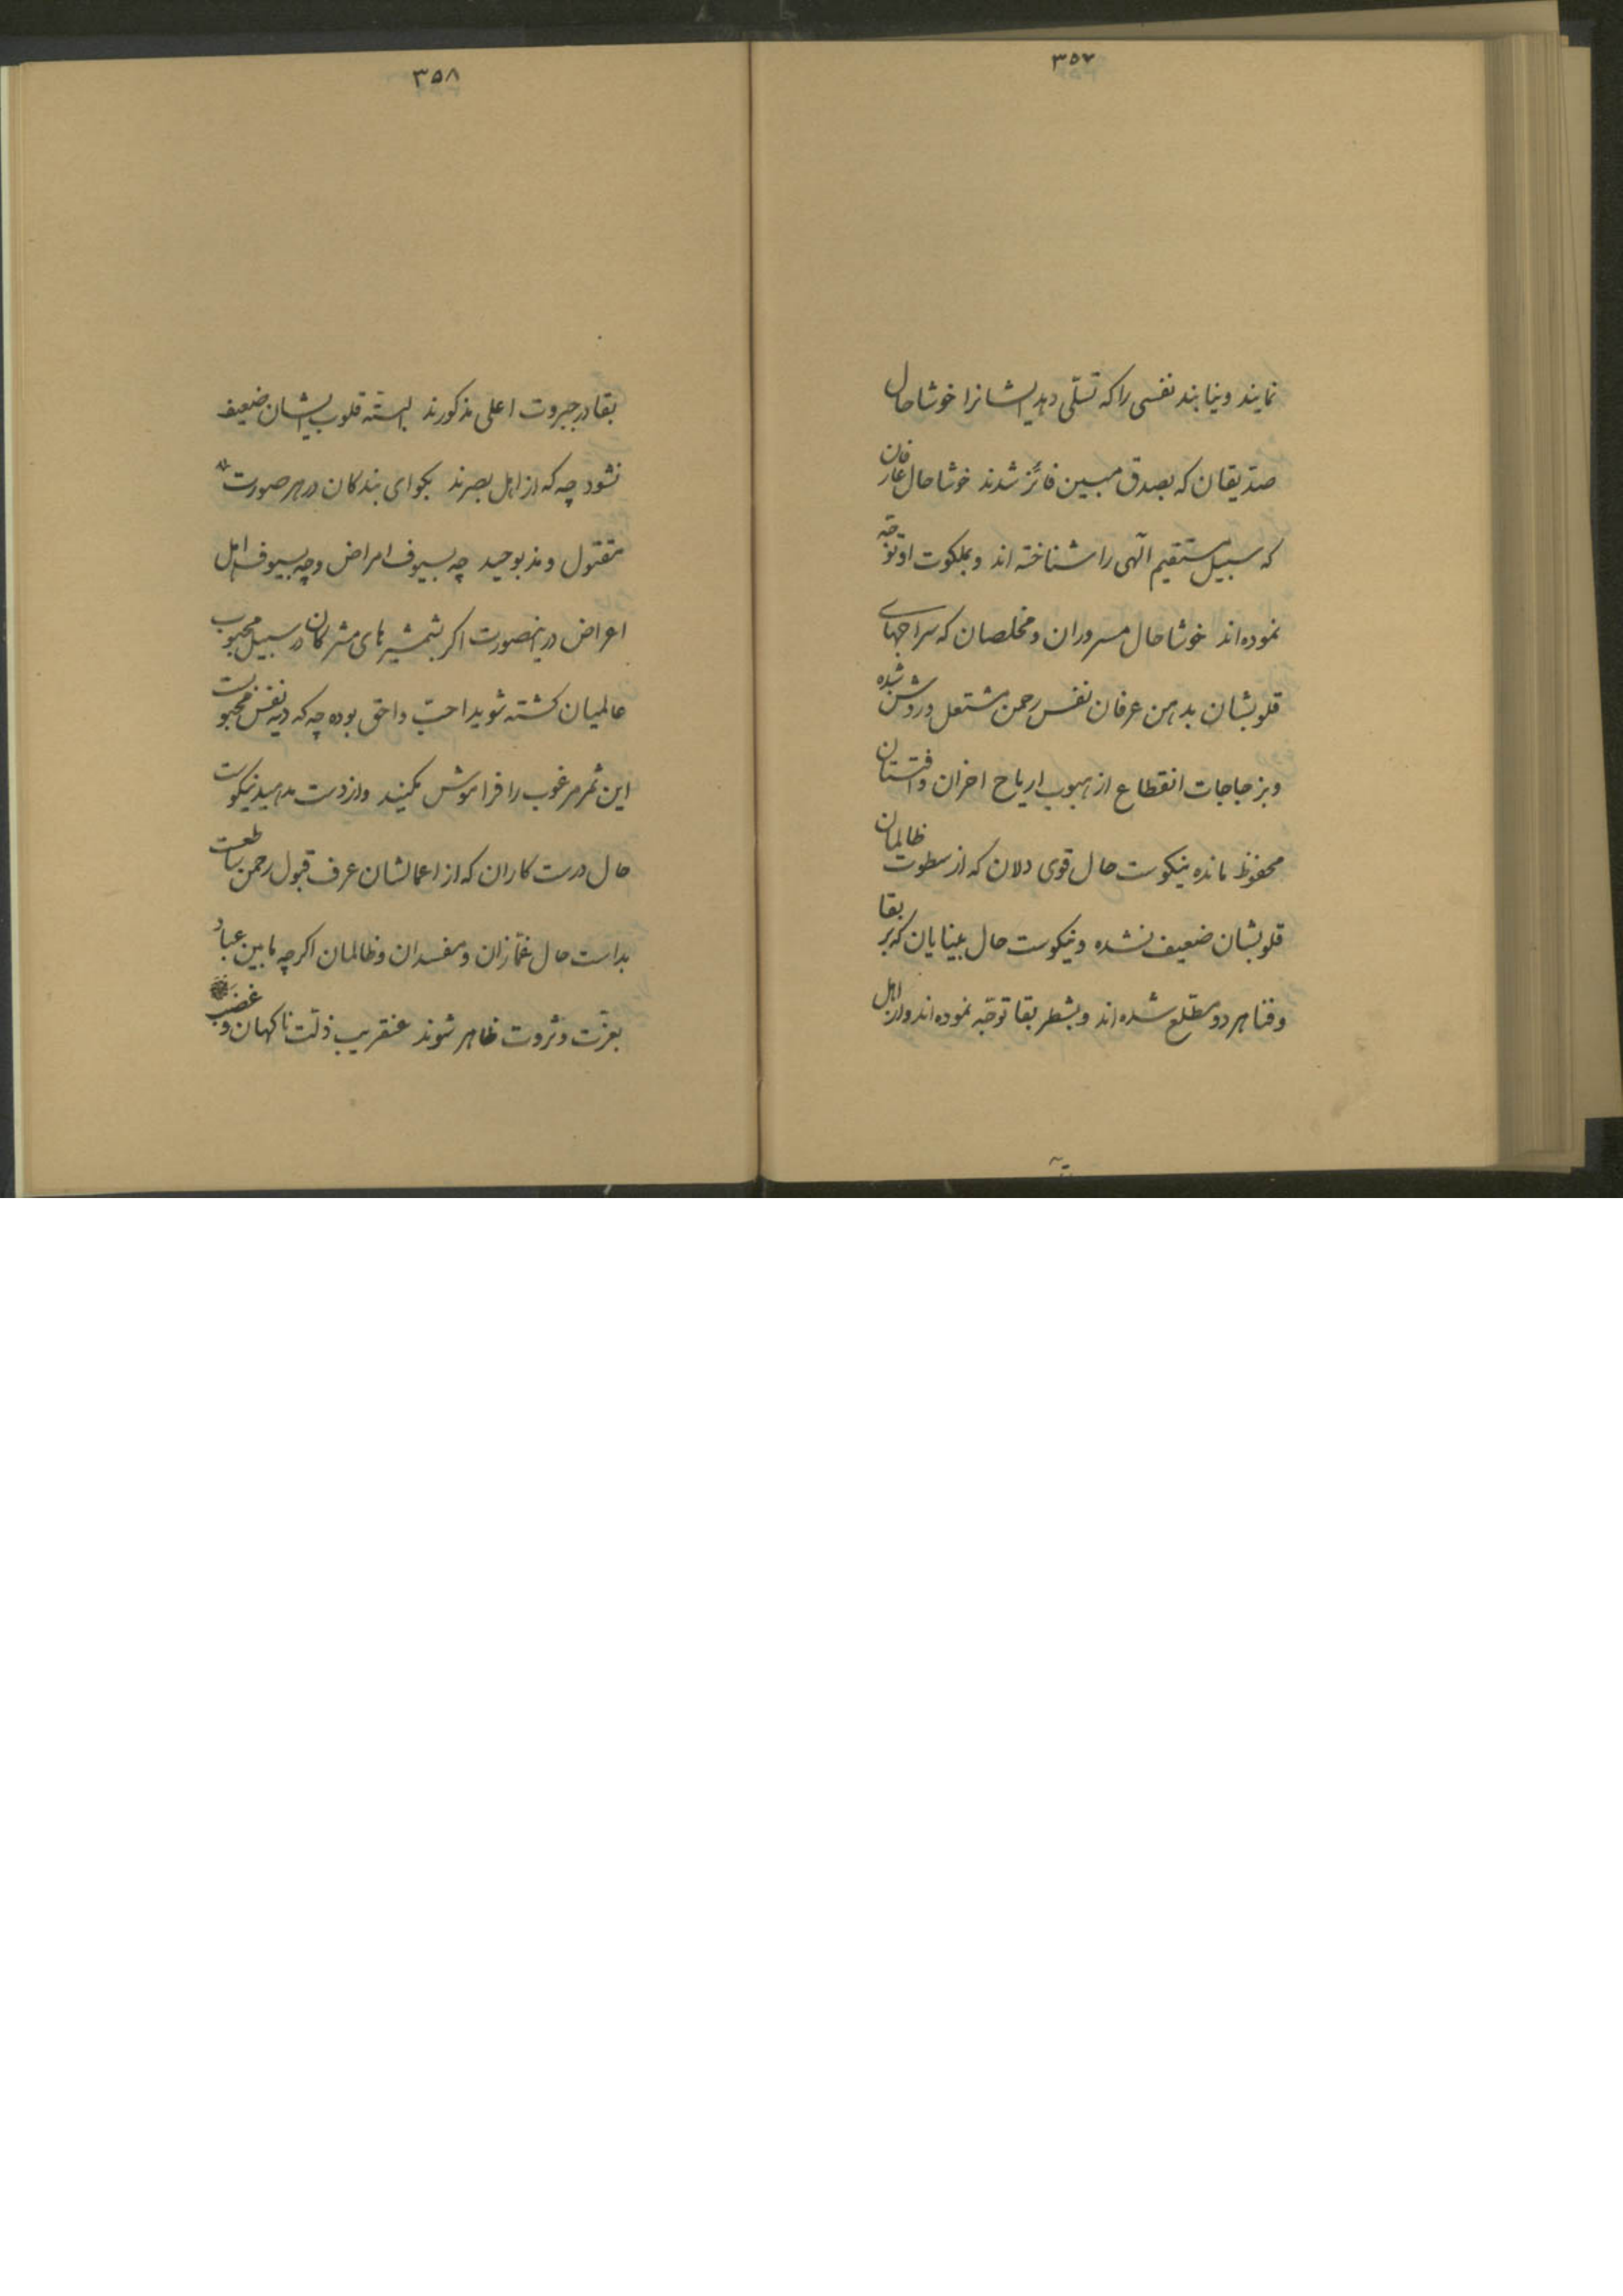 ۳۵۷
نمایند و نیابند نفسی را که تسلّی دهد ایشانرا خوشا حال
صدّیقان که بصدق مبین فائز شدند خوشا حال عارفان
که سبیل مستقیم الهی را شناخته اند و بملکوت او توجّه
نموده اند خوشا حال مسروران و مخلصان که سراجهای
قلوبشان بدهن عرفان نفس رحمن مشتعل و روشن شده
و بزجاجات انقطاع از هبوب اریاح احزان و افتتان
محفوظ مانده نیکوست حال قوی دلان که از سطوت ظالمان
قلوبشان ضعیف نشده و نیکوست حال بینایان که بر بقا
و فنا هر دو مطّلع شده اند و بشطر بقا توجّه نموده اند و از اهل
۳۵۸
بقا در جبروت اعلی مذکورند البتّه قلوب ایشان ضعیف
نشود چه که از اهل بصرند بکو ای بندکان در هر صورت
مقتول و مذبوحید چه بسیوف امراض و چه بسیوف اهل
اعراض در اینصورت اکر بشمشیرهای مشرکان در سبیل محبوب
عالمیان کشته شوید احبّ و احقّ بوده چه که دیه نفس محبوبست
این ثمر مرغوب را فراموش مکنید و از دست مدهید نیکوست
حال درست کاران که از اعمالشان عرف قبول رحمن ساطعست
بد است حال غمّازان و مفسدان و ظالمان اکرچه مابین عباد
بعزّت و ثروت ظاهر شوند عنقریب ذلّت ناکهان و غضب